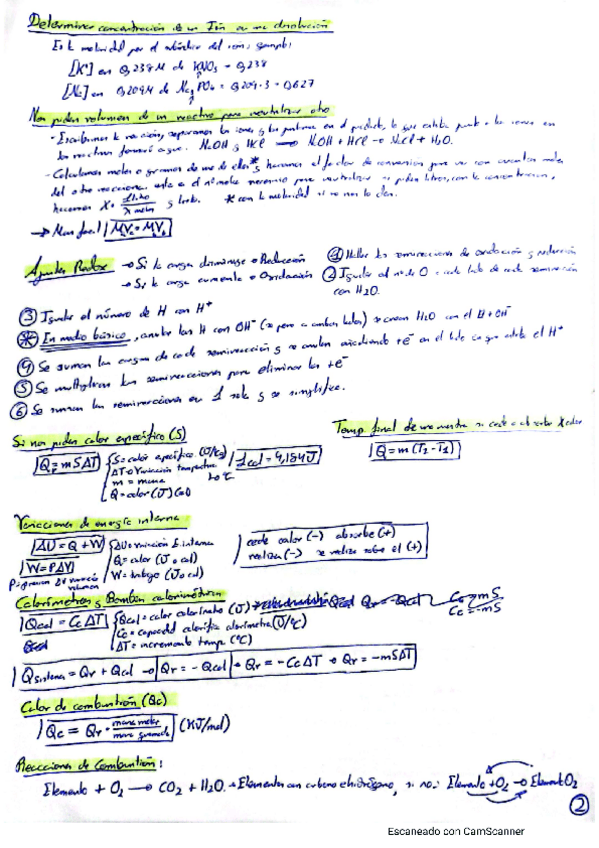 Determinar concentración de un Ión en una disolución
Es la molaridad por el subíndice del ion, ejemplo:
[K⁺] en 0,238M de KNO₃ = 0,238
[Na] en 0,209M de Na₃PO₄ = 0,209·3 = 0,627
Nos piden volumen de un reactivo para neutralizar otro
- Escribimos la reacción, separamos los iones y los juntamos en el producto, lo que
los reactivos formará agua. NaOH y HCl → NaOH + HCl → NaCl + H₂O.
- Calculamos moles o gramos de uno de ellos* y hacemos el factor de conversión para ver con cuantos moles
del otro reacciona, este es el nº moles necesario para neutralizar si piden litros, con la concentración,
hacemos X · 1 litro / X moles y listo. * con la molaridad si no nos lo dan.
→ Mas facil | MₐVₐ = M_bV_b
Ajustes Redox → Si la carga disminuye → Reducción
→ Si la carga aumenta → Oxidación
① Hallar las semirreacciones de oxidación y reducción
② Igualar el nº de O a cada lado de cada semirreación
con H₂O.
③ Igualar el número de H con H⁺
* En medio básico, anular los H con OH⁻ (se pone a ambos lados) se crean H₂O con el H + OH⁻
④ Se suman las cargas de cada semirreacción y se anulan añadiendo +e⁻ en el lado en que estaba el H⁺
⑤ Se multiplican las semirreacciones para eliminar los +e⁻
⑥ Se suman las semirreacciones en 1 sola y se simplifica.
Si nos piden calor específico (S)
Q = mSΔT
S = calor específico (J/Kg)
ΔT = Variación temperatura
m = masa
Q = calor (J)
1cal = 4,184J
Temp final de una muestra si cede o absorbe X calor
Q = m(T₂ - T₁)
Variaciones de energía interna
ΔU = Q + W
W = PΔV
P = presion ΔV variació volumen
ΔU = variación E. interna
Q = calor (J o cal)
W = trabajo (J o cal)
cede calor (-) absorbe (+)
realiza (-) se realiza sobre el (+)
Calorímetros y Bomba calorimétrica
Qcal = CcΔT
Qcal = calor calorímetro (J)
Cc = capacidad calorífica calorímetro (J/°C)
ΔT = incremento tempe. (°C)
Qr = -Qcal
Cc = mS
Cc = -mS
Qsistema = Qr + Qcal → Qr = -Qcal → Qr = -CcΔT → Qr = -mSΔT
Calor de combustión (Qc)
Qc = Qr · masa molar / masa gramos (KJ/mol)
Reacciones de Combustión:
Elemento + O₂ → CO₂ + H₂O → Elementos con carbono e hidrógeno, si no: Elemento + O₂ → ElementO₂
②
Escaneado con CamScanner